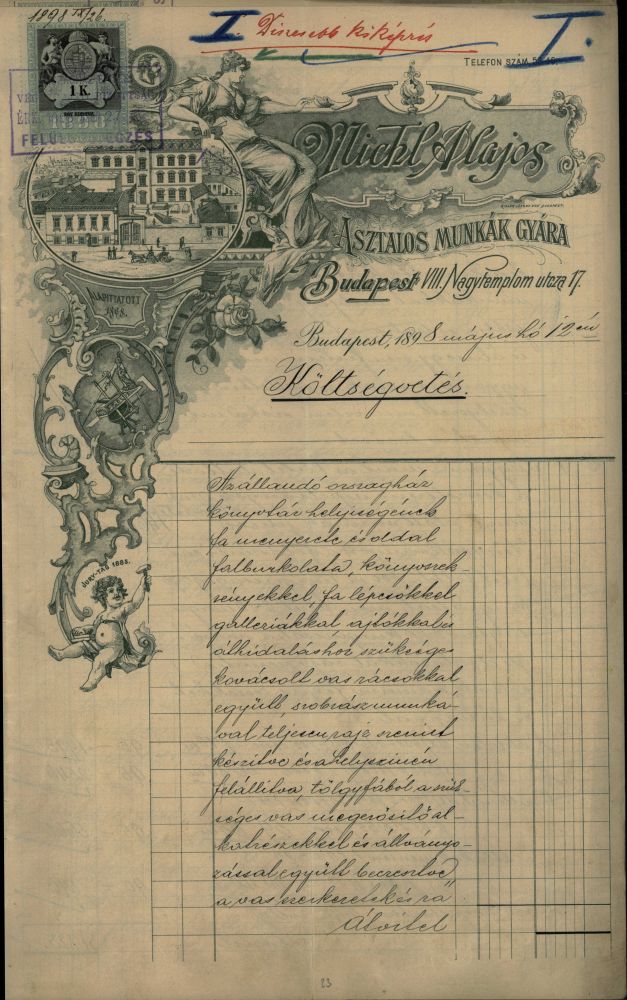 1898 IX/26.
I. Díszesebb kiképzés I.
TELEFON SZÁM
1 K.
FELÜL
Michl Alajos
ASZTALOS MUNKÁK GYÁRA
Budapest VIII. Nagytemplom utcza 17.
ALAPITTATOTT
1868.
Budapest, 1898 május hó 12 én
Költségvetés.
Az állandó országház
könyvtár helyiségének
fa menyezete és oldal
falburkolata, könyvszek-
rényekkel, fa lépcsőkkel
galleriákkal, ajtókkal és
áthidaláshoz szükséges
kovácsolt vas rácsokkal
együtt, szobrász munká-
val teljesen rajz szerint
készítve és a helyszinén
felállítva, tölgyfából a szük-
séges vas megerősítő al-
katrészekkel és állványo-
zással együtt beeresztve
a vas szerkezetek és rá"
Átvitel
JURY-TAG 1885.
23